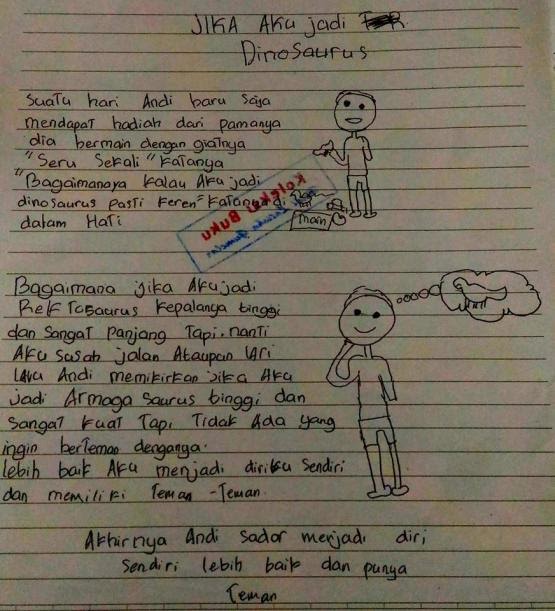 JIKA AKu jadi
DinoSaurus
Suatu hari Andi baru saja
mendapat hadiah dari pamanya
dia bermain dengan giatnya
"Seru Sekali" Katanya
"Bagaimanaya kalau AKu jadi
dinosaurus pasti keren" Katanya di
dalam Hati
Koleksi Buku
main
Bagaimana jika AKu jadi
kepalanya tinggi
dan Sangat panjang Tapi. nanti
AKu susah jalan Ataupun lAri
lAlu Andi memikirkan jika AKu
jadi Armaga Saurus tinggi dan
Sangat kuat Tapi Tidak Ada yang
ingin berteman denganya.
lebih baik AKu menjadi diriku Sendiri
dan memiliki Teman -Teman.
Akhirnya Andi sadar menjadi diri
Sendiri lebih baik dan punya
Teman